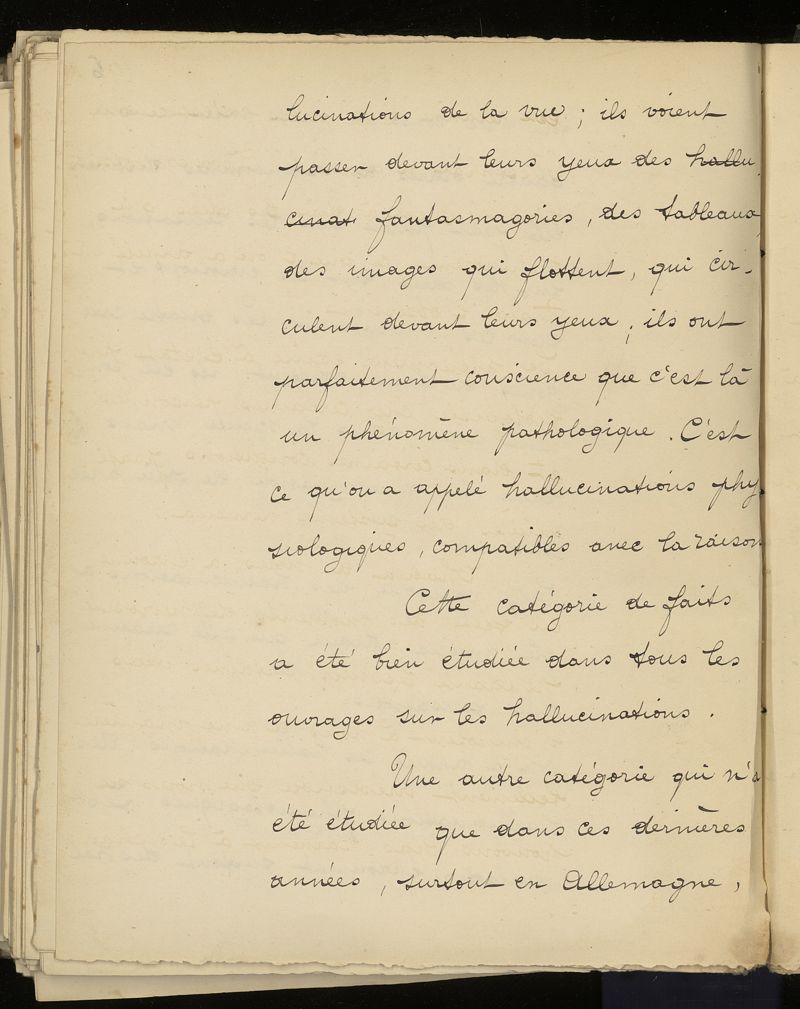 lucinations de la vue ; ils voient
passer devant leurs yeux des hallu
cinat. fantasmagories, des tableaux,
des images qui flottent, qui cir-
culent devant leurs yeux ; ils ont
parfaitement conscience que c'est là
un phénomène pathologique. C'est
ce qu'on a appelé hallucinations phy
siologiques, compatibles avec la raison
Cette catégorie de faits
a été bien étudiée dans tous les
ouvrages sur les hallucinations.
Une autre catégorie qui n'a
été étudiée que dans ces dernières
années, surtout en Allemagne,